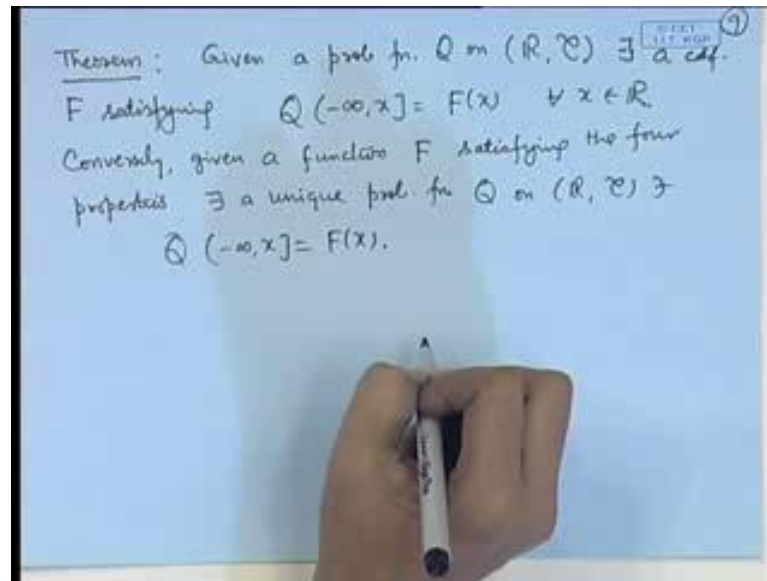 Theorem : Given a prob fn. Q on (ℝ, 𝒞) ∃ a cdf.
F satisfying Q (-∞, x] = F(x) ∀ x ∈ ℝ.
Conversely, given a function F satisfying the four
properties ∃ a unique prob. fn Q on (ℝ, 𝒞) ∋
Q (-∞, x] = F(x).
9